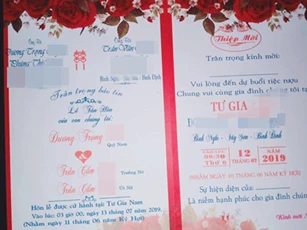 Ông Bà
Dương Trọng
Phùng Thị
Ông Bà
Trần Văn
Bình Nghi - Bình Định
Trân trọng báo tin
Lễ Tân Hôn
của con chúng tôi:
Dương Trọng
Trần Cẩm
Trưởng Nữ
Trần Cẩm
Út Nữ
Hôn lễ được cử hành tại: Tư Gia Nam
Vào lúc: 03 giờ 00, ngày 13 tháng 07 năm 2019
(Nhằm ngày 11 tháng 06 năm Kỷ Hợi)
Thiệp Mời
Trân trọng kính mời:
Vui lòng đến dự buổi tiệc rượu
Chung vui cùng gia đình chúng tôi tại
TƯ GIA
Bình Nghi - Bình Định
Thứ 6
12
NĂM
2019
Sự hiện diện của
là niềm hạnh phúc cho gia đình chúng
Kính mời